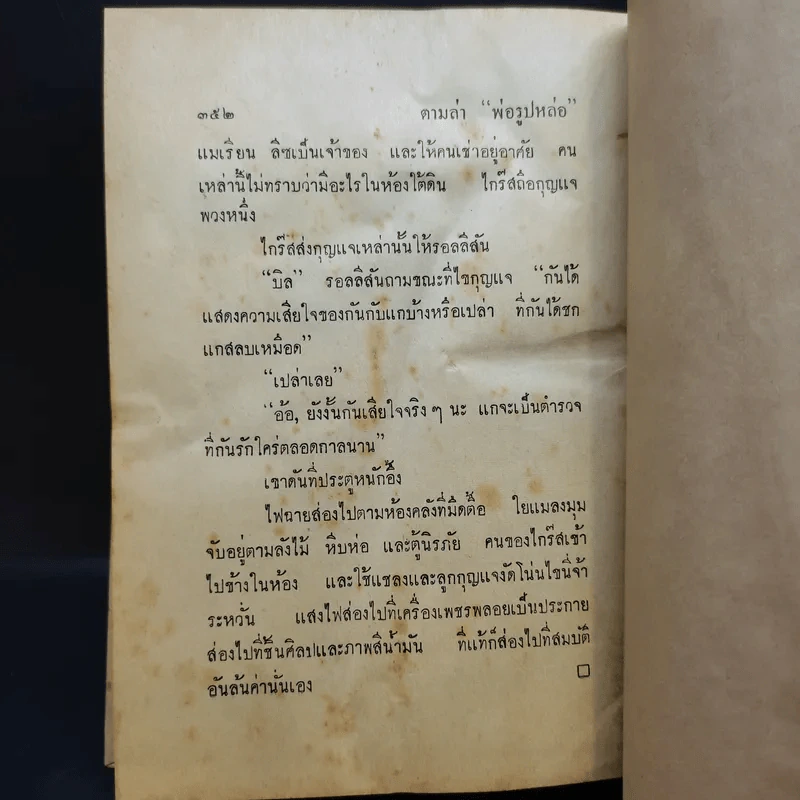 ๓๕๒ ตามล่า “พ่อรูปหล่อ”
แมเรียน ลิซเป็นเจ้าของ และให้คนเช่าอยู่อาศัย คน
เหล่านี้ไม่ทราบว่ามีอะไรในห้องใต้ดิน ไกร๊สถือกุญแจ
พวงหนึ่ง
ไกร๊สส่งกุญแจเหล่านั้นให้รอลลิสัน
“บิล” รอลลิสันถามขณะที่ไขกุญแจ “กันได้
แสดงความเสียใจของกันกับแกบ้างหรือเปล่า ที่กันได้ชก
แกสลบเหมือด”
“เปล่าเลย”
“อ้อ, ยังงั้นกันเสียใจจริง ๆ นะ แกจะเป็นตำรวจ
ที่กันรักใคร่ตลอดกาลนาน”
เขาดันที่ประตูหนักอึ้ง
ไฟฉายส่องไปตามห้องคลังที่มืดตื้อ ใยแมลงมุม
จับอยู่ตามลังไม้ หีบห่อ และตู้นิรภัย คนของไกร๊สเข้า
ไปข้างในห้อง และใช้แชลงและลูกกุญแจงัดโน่นไขนี่จ้า
ระหวั่น แสงไฟส่องไปที่เครื่องเพชรพลอยเป็นประกาย
ส่องไปที่ชิ้นศิลปและภาพสีน้ำมัน ที่แท้ก็ส่องไปที่สมบัติ
อันล้นค่านั่นเอง □